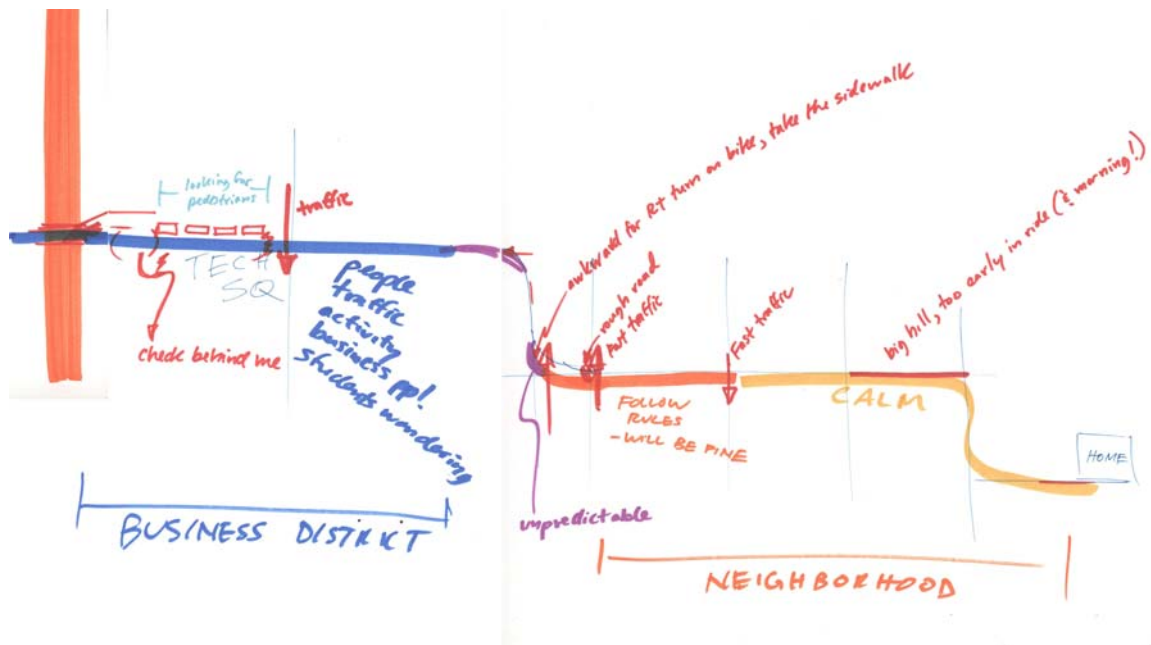 looking for
pedestrians
traffic
TECH
SQ
check behind me
people
traffic
activity
business ppl
students wandering
BUSINESS DISTRICT
awkward for Rt turn on bike, take the sidewalk
rough road
fast traffic
Fast traffic
big hill, too early in ride (& morning!)
FOLLOW
RULES
- WILL BE FINE
CALM
HOME
unpredictable
NEIGHBORHOOD